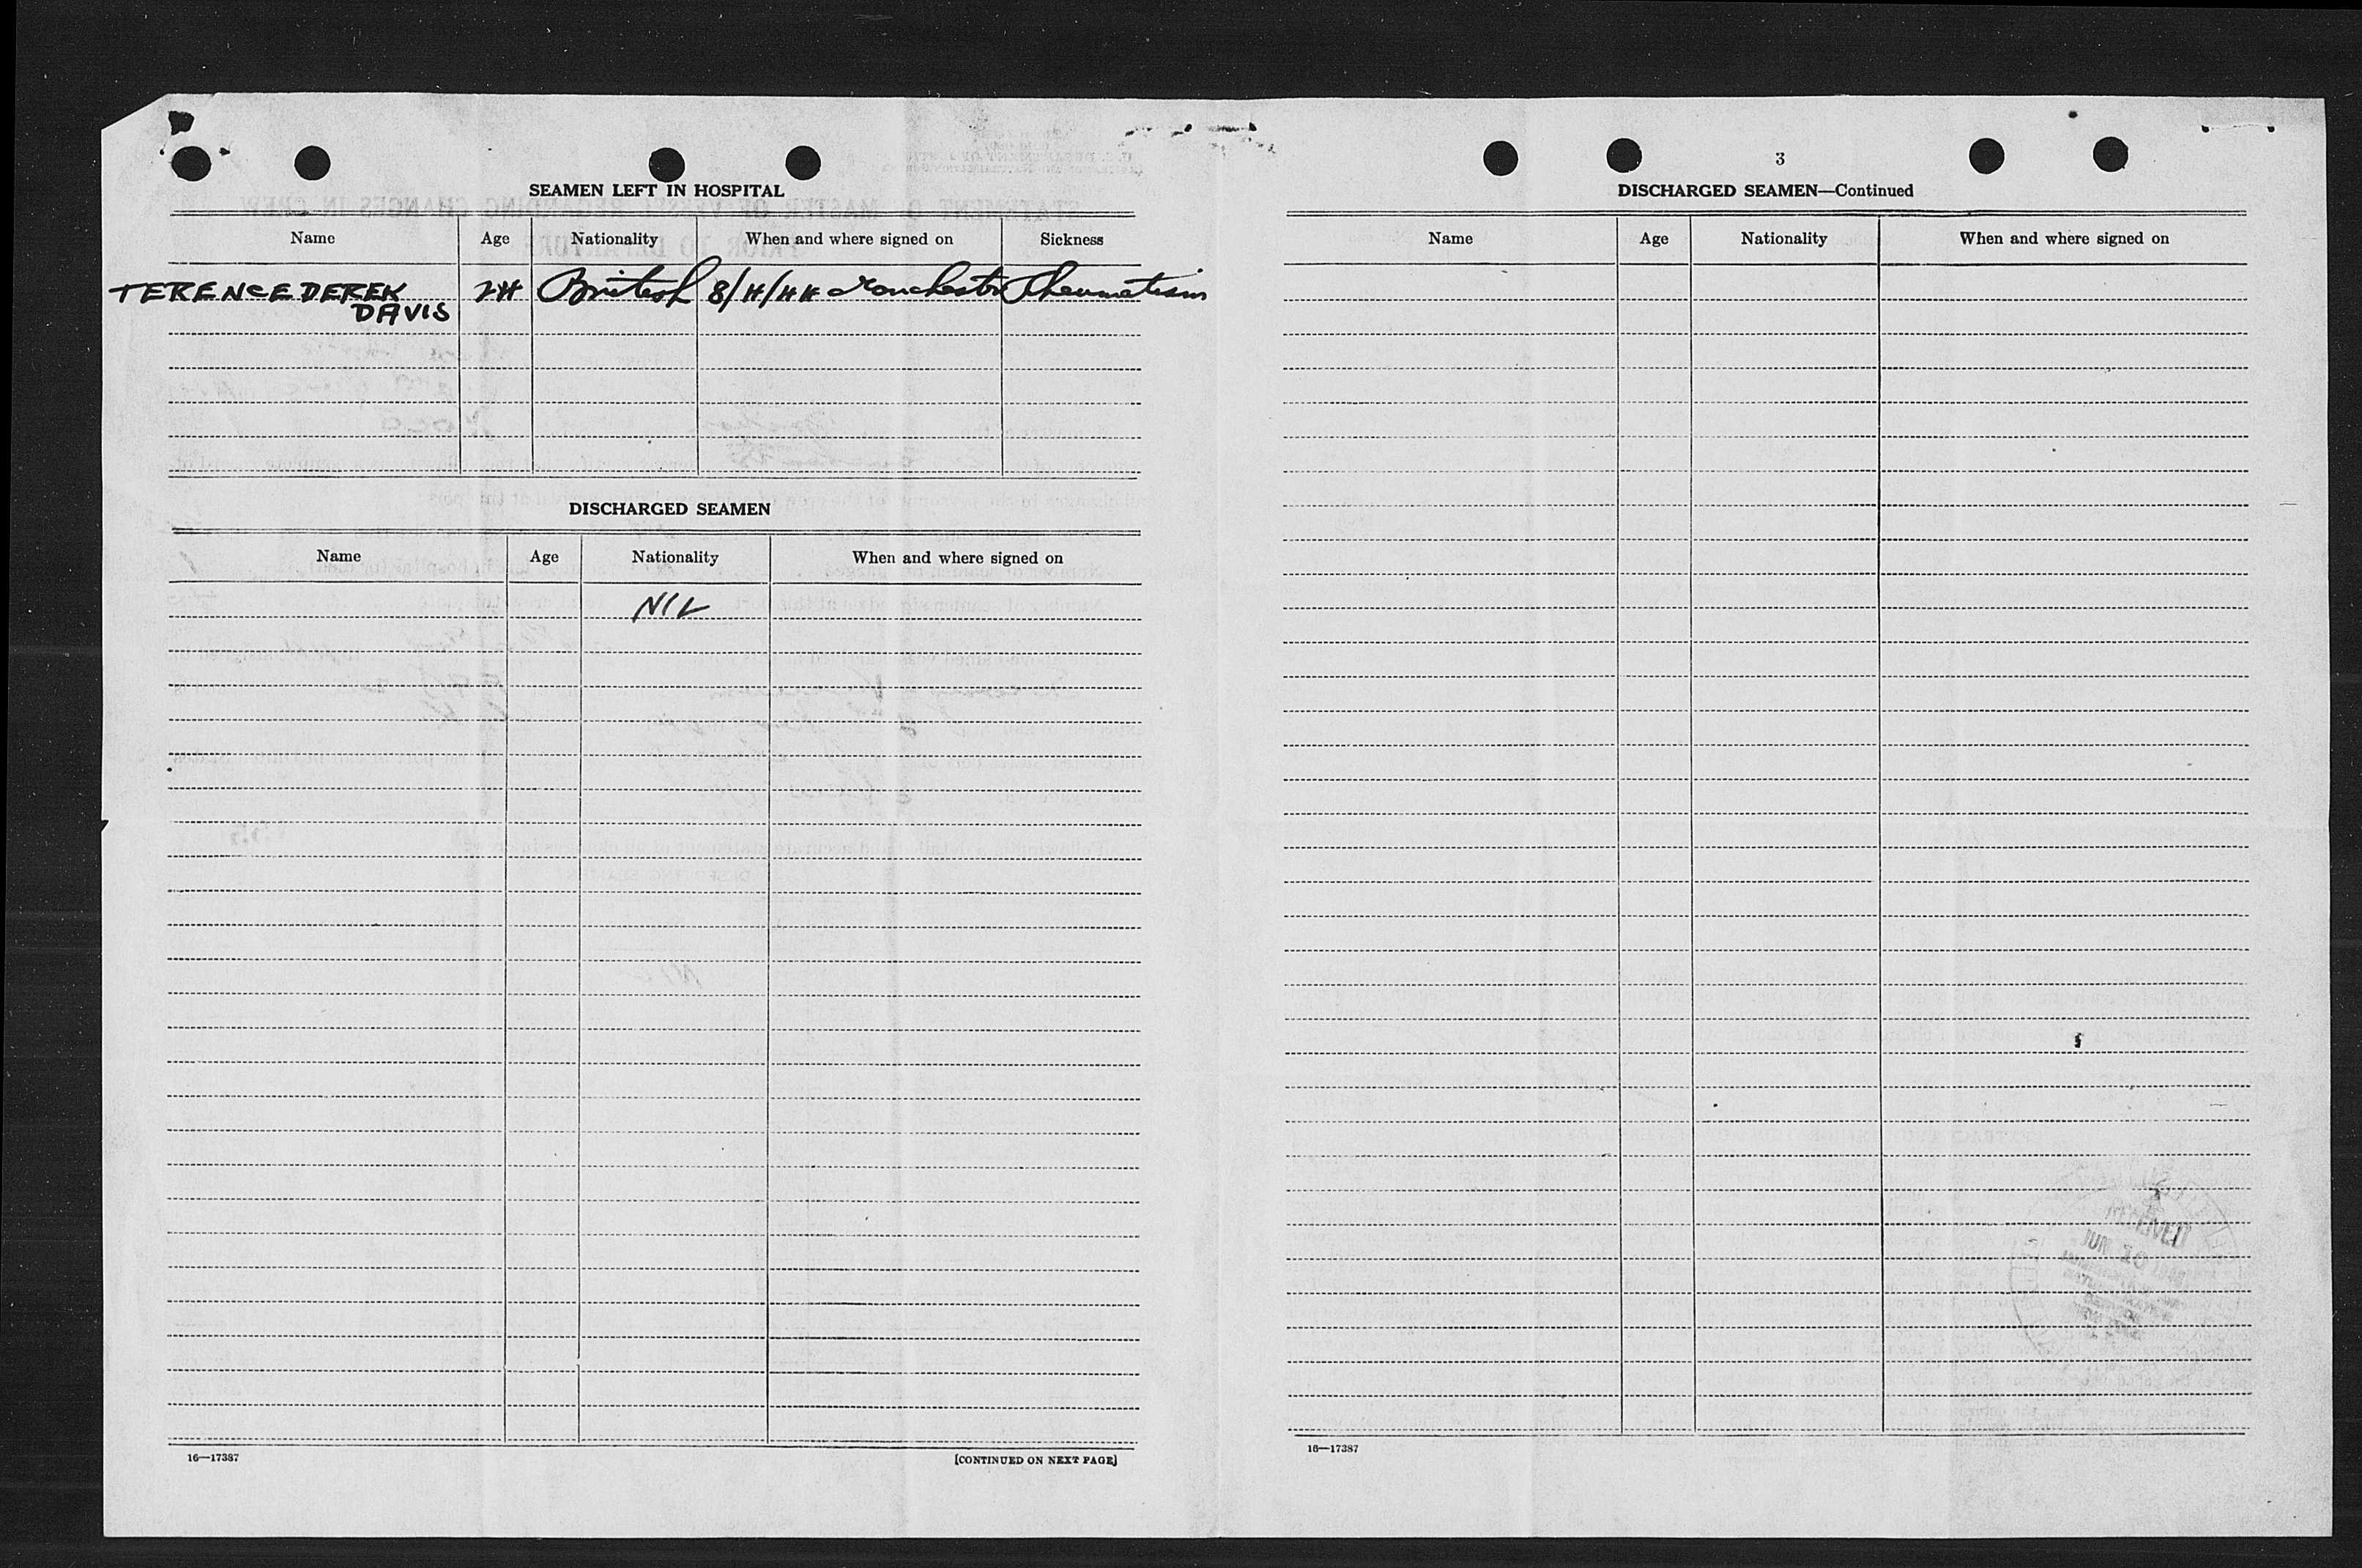 SEAMEN LEFT IN HOSPITAL
Name Age Nationality When and where signed on Sickness
TERENCE DEREK DAVIS 24 British 8/4/44 Manchester Rheumatism
DISCHARGED SEAMEN
Name Age Nationality When and where signed on
NIL
16—17387 [CONTINUED ON NEXT PAGE]
3
DISCHARGED SEAMEN—Continued
Name Age Nationality When and where signed on
RECEIVED
JUN 10
16—17387